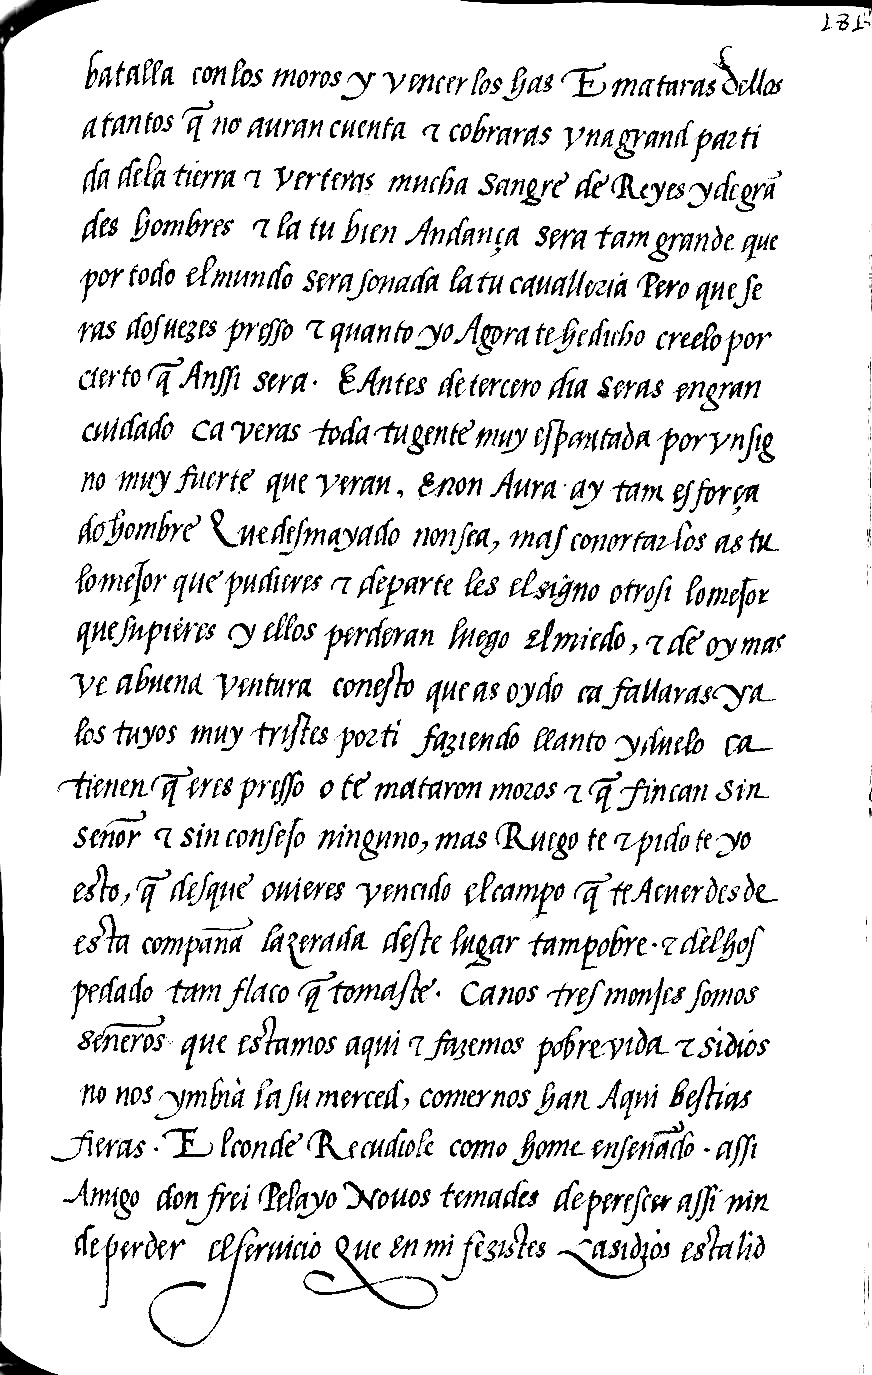 181
batalla con los moros y vencer los has E mataras dellos
a tantos q̃ no auran cuenta τ cobraras vna grand parti
da de la tierra τ verteras mucha sangre de Reyes y de grã
des hombres τ la tu bien Andança sera tam grande que
por todo el mundo sera sonada la tu cauallezia Pero que se
ras dos uezes presso τ quanto yo Agora te he dicho creelo por
cierto q̃ Anssi sera. E Antes de tercero dia seras en gran
cuidado ca veras toda tu gente muy espantada por vn sig
no muy fuerte que veran. E non Aura ay tam esforça
do hombre Que desmayado non sea, mas conortar los as tu
lo mejor que pudieres τ departe les el signo otrosi lo mejor
que supieres y ellos perderan luego El miedo, τ de oy mas
ve a buena ventura con esto que as oydo ca fallaras ya
los tuyos muy tristes por ti faziendo llanto y duelo ca
tienen q̃ eres presso o te mataron moros τ q̃ fincan sin
señor τ sin consejo ninguno, mas Ruego te τ pido te yo
esto, q̃ desque ouieres vencido el campo q̃ te Acuerdes de
esta compañã lazerada deste lugar tam pobre. τ del hos
pedado tam flaco q̃ tomaste. Ca nos tres monjes somos
señeros que estamos aqui τ fazemos pobre vida τ si dios
no nos ymbia la su merced, comer nos han Aqui bestias
fieras. El conde Recudiole como home enseñado. assi
Amigo don frei Pelayo Non os temades de perescer assi nin
de perder el seruicio Que en mi fezistes Ca si dios esta lid